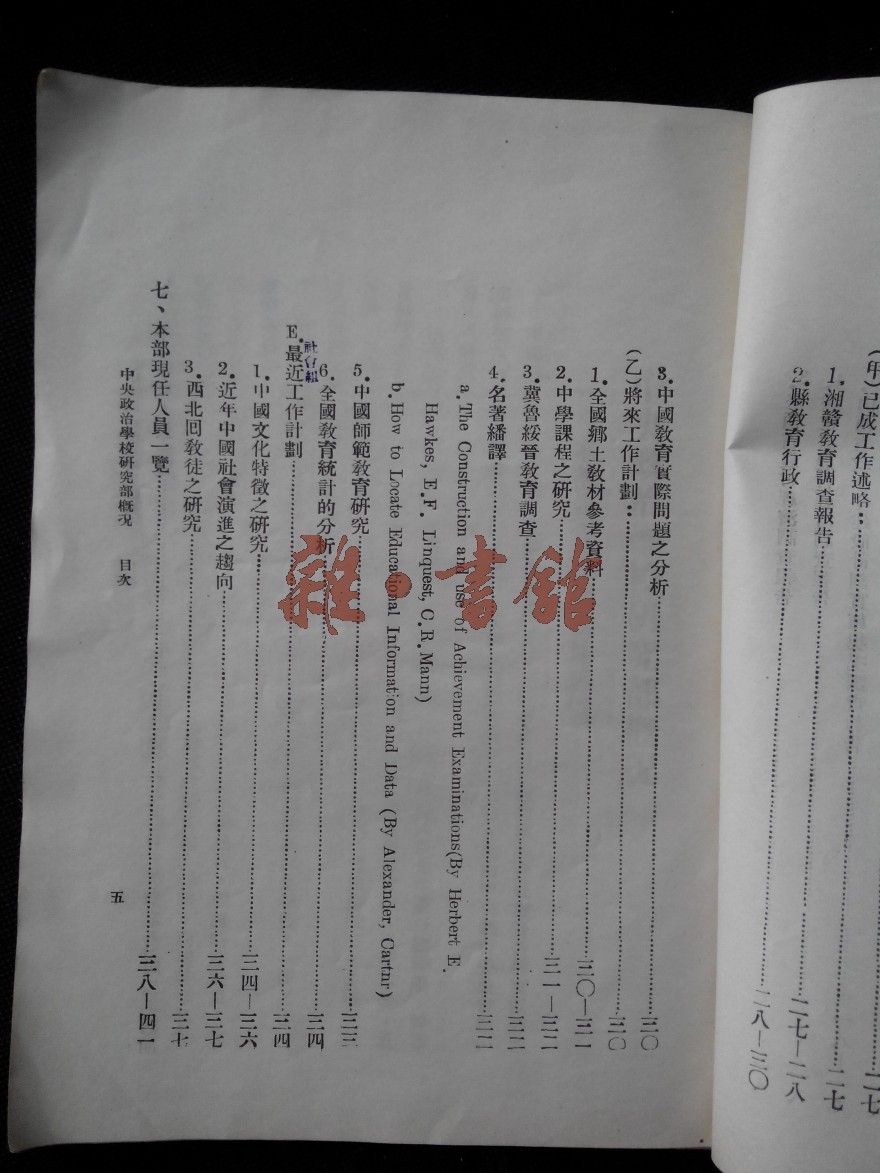 (甲)已成工作述略：……二七
1.湘贛教育調查報告……二七
……二七—二八
2.縣教育行政……二八—三〇
3.中國教育實際問題之分析……三〇
(乙)將來工作計劃：……三〇
1.全國鄉土教材參考資料……三〇—三一
2.中學課程之研究……三一—三二
3.冀魯綏晉教育調查……三二
4.名著繙譯……三二
a.The Construction and use of Achievement Examinations(By Herbert E.
Hawkes, E.F. Linquest, C.R.Mann)
b.How to Locate Educational Information and Data (By Alexander, Cartnr)
5.中國師範教育研究……三三
6.全國教育統計的分析……三四
社會組
E.最近工作計劃……三四
1.中國文化特徵之研究……三四—三六
2.近年中國社會演進之趨向……三六—三七
3.西北回教徒之研究……三七
七、本部現任人員一覽……三八—四一
中央政治學校研究部概況 目次 五
雜·書館